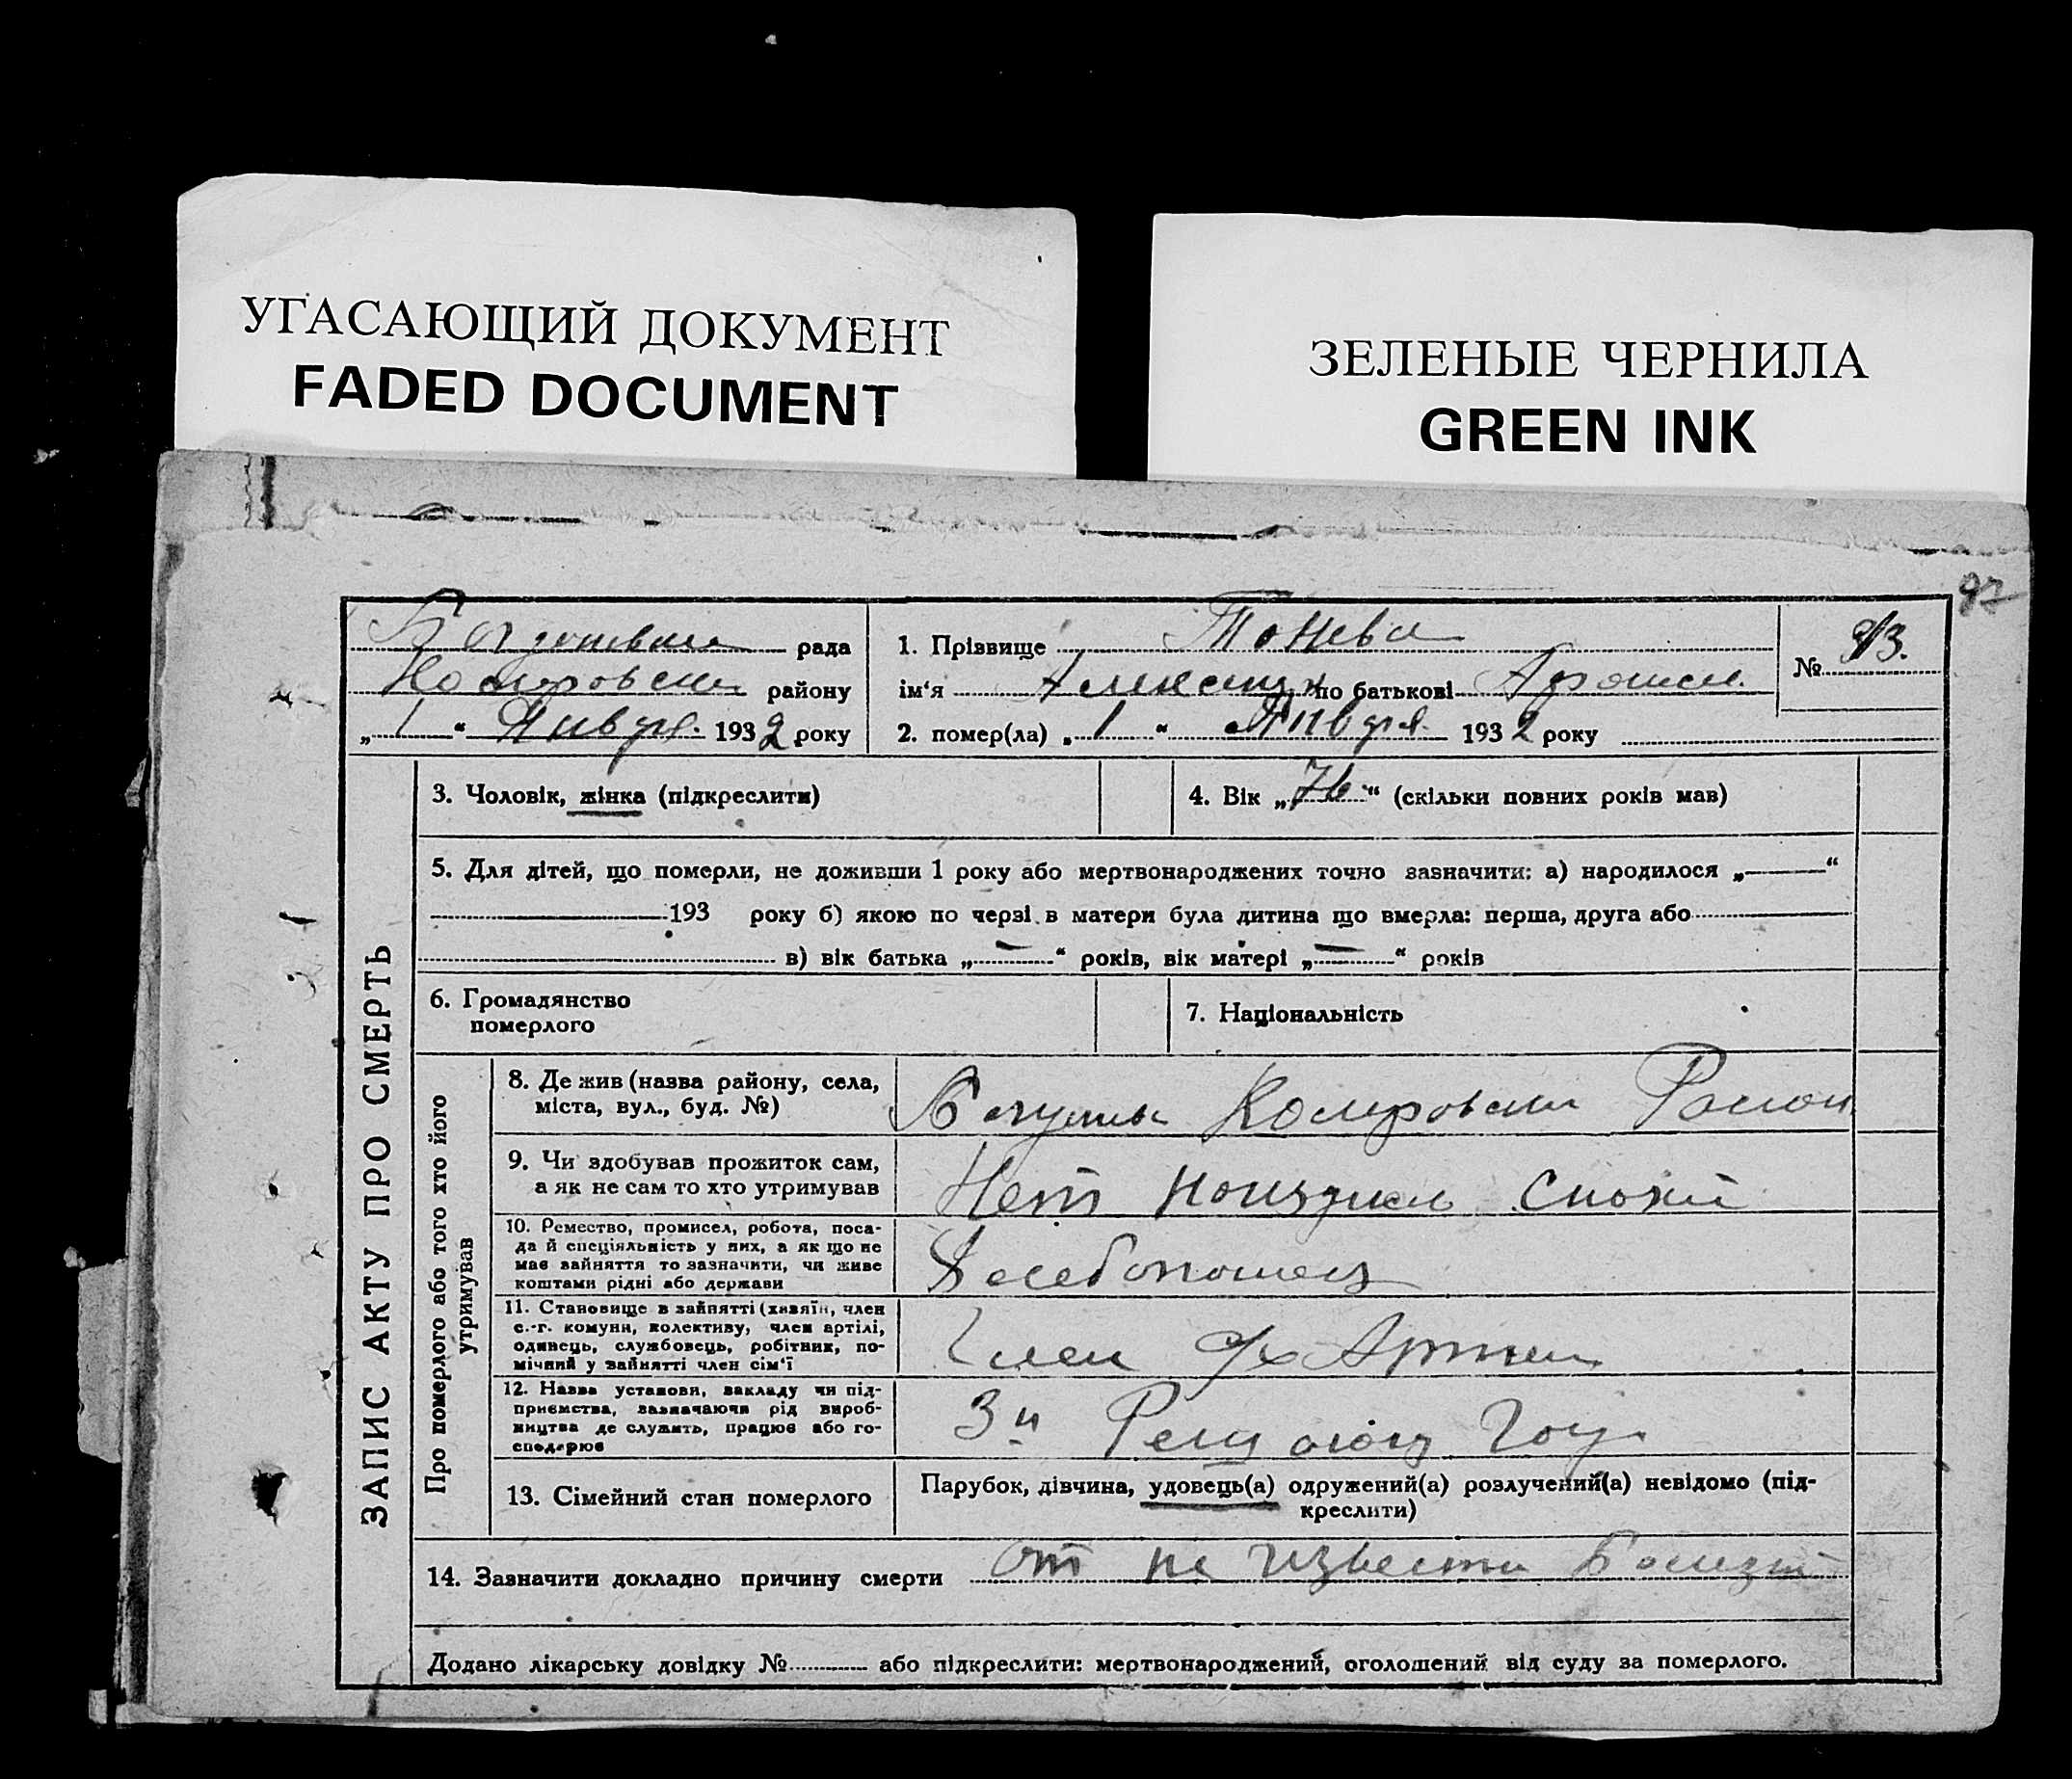 УГАСАЮЩИЙ ДОКУМЕНТ
FADED DOCUMENT
ЗЕЛЕНЫЕ ЧЕРНИЛА
GREEN INK
97
рада
району
„1“ Января 1932 року
1. Прізвище Тонева
ім‘я по батькові
2. помер(ла) „1“ Января 1932 року
№
ЗАПИС АКТУ ПРО СМЕРТЬ
3. Чоловік, жінка (підкреслити)
4. Вік „76“ (скільки повних років мав)
5. Для дітей, що померли, не доживши 1 року або мертвонароджених точно зазначити: а) народилося „—“
193 року б) якою по черзі в матери була дитина що вмерла: перша, друга або
в) вік батька „—“ років, вік матері „—“ років
6. Громадянство
померлого
7. Національність
Про померлого або того хто його
утримував
8. Де жив (назва району, села,
міста, вул., буд. №)
Район
9. Чи здобував прожиток сам,
а як не сам то хто утримував
Нет
10. Ремество, промисел, робота, поса-
да й спеціяльність у них, а як що не
має зайняття то зазначити, чи живе
коштами рідні або держави
11. Становище в зайнятті (хазяїн, член
с.-г. комуни, колективу, член артілі,
одинець, службовець, робітник, по-
мічний у зайнятті член сім‘ї
Член с/х Артели
12. Назва установи, закладу чи під-
приємства, зазначаючи рід вироб-
ництва де служить, працює або го-
сподарює
13. Сімейний стан померлого
Парубок, дівчина, удовець(а) одружений(а) розлучений(а) невідомо (під-
креслити)
14. Зазначити докладно причину смерти от не
Додано лікарську довідку № або підкреслити: мертвонароджений, оголошений від суду за померлого.